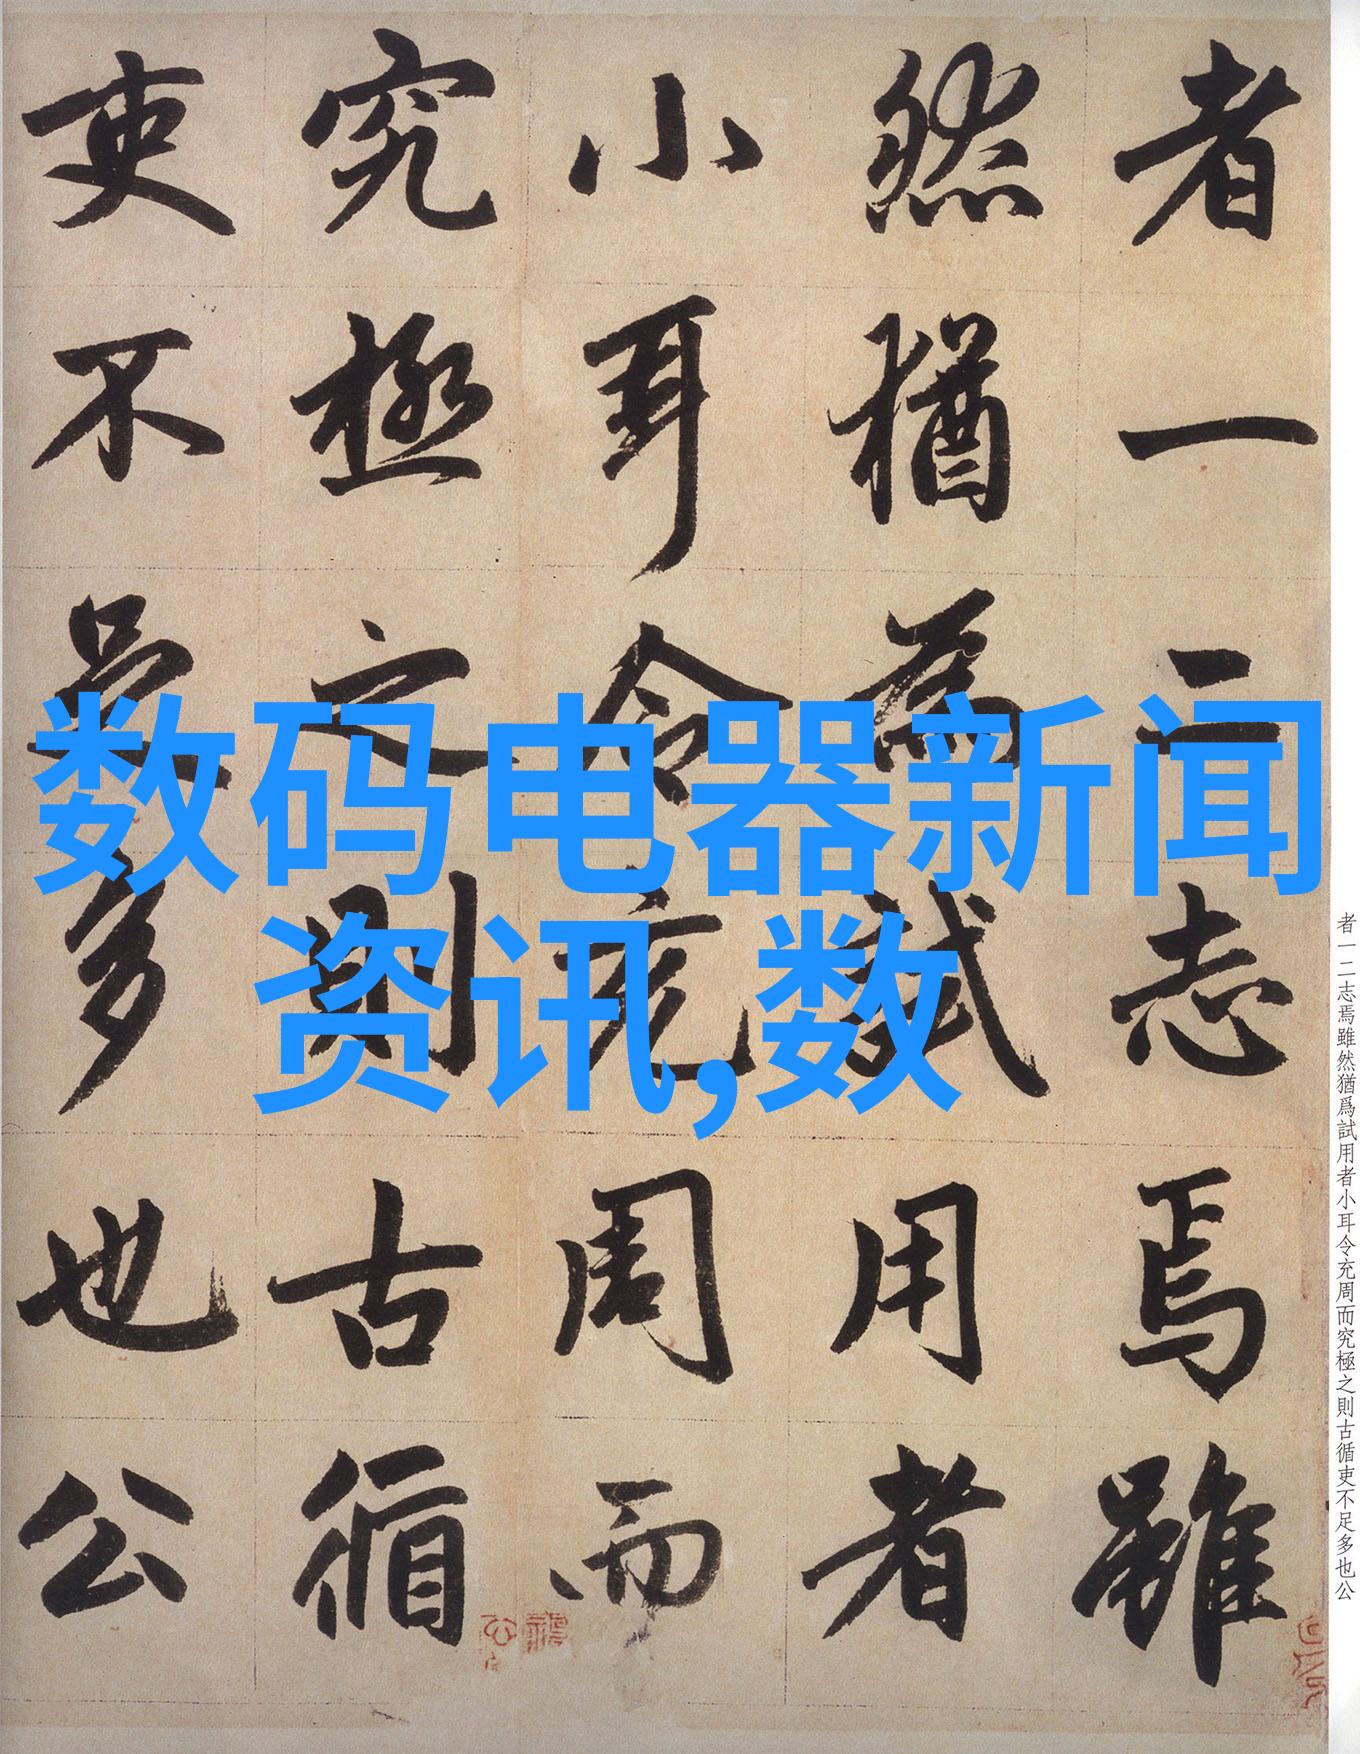 者一二志焉雖
然猶為試用者
小耳令充周而
究極之則古循
吏不足多也公
数码电器新闻
资讯,数
者一二志焉雖然猶爲試用者小耳令充周而究極之則古循吏不足多也公